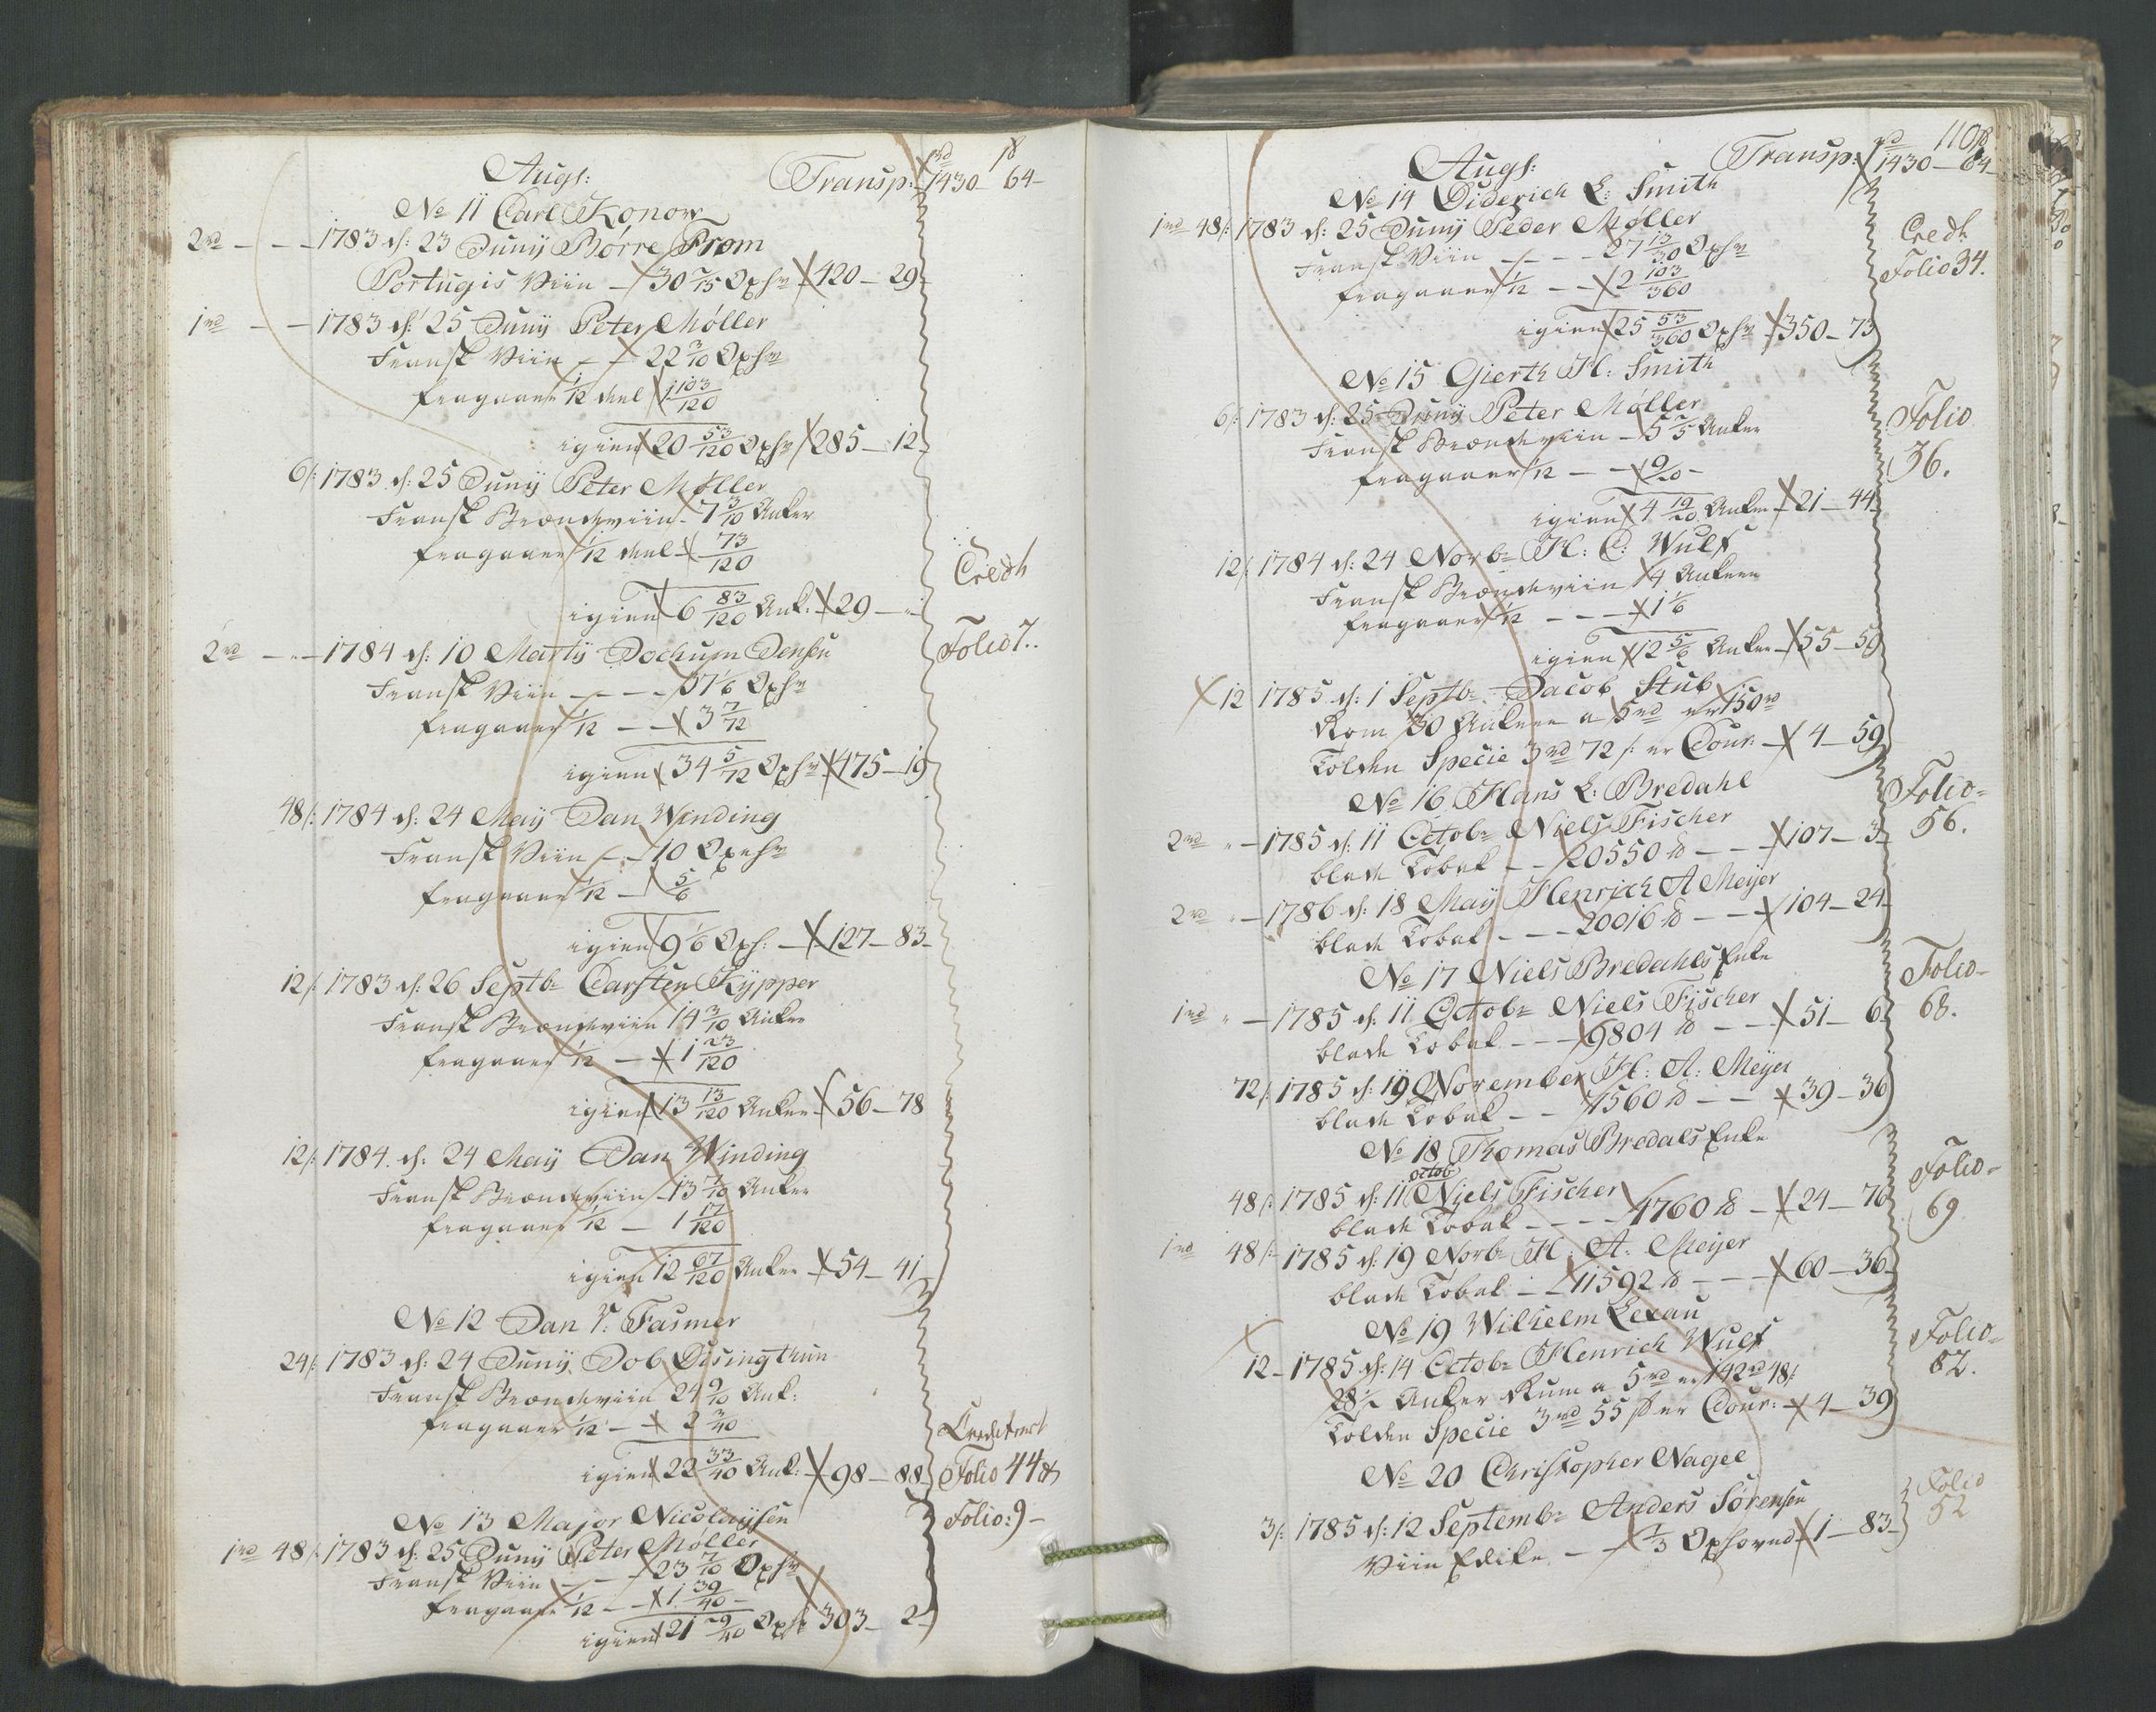 Augs: Transp: rd 1430 – 64 –
No 11 Carl Konow
2rd – – – 1783 d: 23 Juny Børre From
Portugis Viin – 30 2/15 Oxhv 420 – 29
1rd – – 1783 d: 25 Juny Peter Møller
Fransk Viin – – 22 3/10 Oxhv
fragaaer 1/12 deel 1 103/120
igien 20 53/120 Oxhv 285 – 12
6/: 1783 d: 25 Juny Peter Møller
Fransk Brændeviin – 7 3/10 Anker
fragaaer 1/12 deel 73/120
igien 6 83/120 Ank: 29 –
Credt
2rd – – 1784 d: 10 Marty Jochum Jensen
Folio 7.
Fransk Viin – – – 37 1/6 Oxhv
fragaaer 1/12 – – 3 7/72
igien 34 5/72 Oxhv 475 – 19
48/: 1784 d: 24 May Dan Winding
Fransk Viin – – 10 Oxehv
fragaaer 1/12 – 5/6
igien 9 1/6 Oxh: – 127 – 83 –
12/: 1783 d: 26 Septbr Carsten Kypper
Fransk Brændeviin 14 3/10 Anker
fragaaer 1/12 – 1 23/120
igien 13 13/120 Anker – 56 – 78
12/: 1784 d: 24 May Dan Winding
Fransk Brændeviin – 13 7/10 Anker
fragaaer 1/12 – 1 17/120
igien 12 67/120 Anker – 54 – 41
No 12 Dan V: Fasmer
24/: 1783 d: 24 Juny Job
Fransk Brændeviin 24 9/10 Ank:
fragaaer 1/12 – – 2 3/40
igien 22 33/40 Ank: – 98 – 88
Folio 44
No 13 Major Nicolaysen
Folio: 9 –
1rd 48/: 1783 d: 25 Juny Peter Møller
Fransk Viin – – – 23 7/10 Oxhv
fragaaer 1/12 – – 1 39/40 –
igien 21 29/40 Oxh 303 – 2
110
Augs: Transp: rd 1430 – 64
No 14 Diderich L: Smith
1rd 48/: 1783 d: 25 Juny Peder Møller
Fransk Viin – – – – 27 13/30 Oxhv
fragaaer 1/12 – – 2 103/360
igien 25 53/360 Oxhv 350 – 73
Credt
Folio 34.
No 15 Gierth H: Smith
6/: 1783 d: 25 Juny Peter Møller
Fransk Brændeviin – 5 2/5 Anker
fragaaer 1/12 – – 9/20 –
igien 4 19/20 Anker 21 – 44
Folio
36.
12/: 1784 d: 24 Novbr H: C: Wulf
Fransk Brændeviin 14 Ankere
fragaaer 1/12 – – – 1 1/6
igien 12 5/6 Anker – 55 – 59
12 1785 d: 1 Septbr Jacob Stub
Rom 30 Ankere a 5rd er 150rd
Tolden Specie 3rd 72/: er Cour: – 4 – 59
No 16 Hans L: Bredahl
Folio –
56.
2rd – 1785 d: 11 Octobr Niels Fischer
blade Tobak – – 20550 lb – – 107 – 3
2rd – 1786 d: 18 May Henrich A Meyer
blade Tobak – – – 20016 lb – – 104 – 24
No 17 Niels Bredahls Enke
Folio –
68.
1rd – 1785 d: 11 Octobr Niels Fischer
blade Tobak – – – 9804 lb – – 51 – 6
72/: 1785 d: 19 November H: A: Meyer
blade Tobak – – 7560 lb – – 39 – 36
No 18 Thomas Bredals Enke
Folio –
69
48/: 1785 d: 11 octob Niels Fischer
blade Tobak – – – – 4760 lb – 24 – 76
1rd 48/: 1785 d: 19 Novbr H: A: Meyer
blade Tobak – – 11592 lb – – – 60 – 36
No 19 Wilhelm Lexau
Folio –
82.
12 – 1785 d: 14 Octobr Henrich Wulf
28 1/2 Anker Rum a 5rd er 142rd 48/:
Tolden Specie 3rd 55 ß er Cour: – 4 – 39
No 20 Christopher Nagel
Folio
52
3/: 1785 d: 12 Septembr Anders Sørensen
Viin Edike – – 1/3 Oxhoved 1 – 83 –